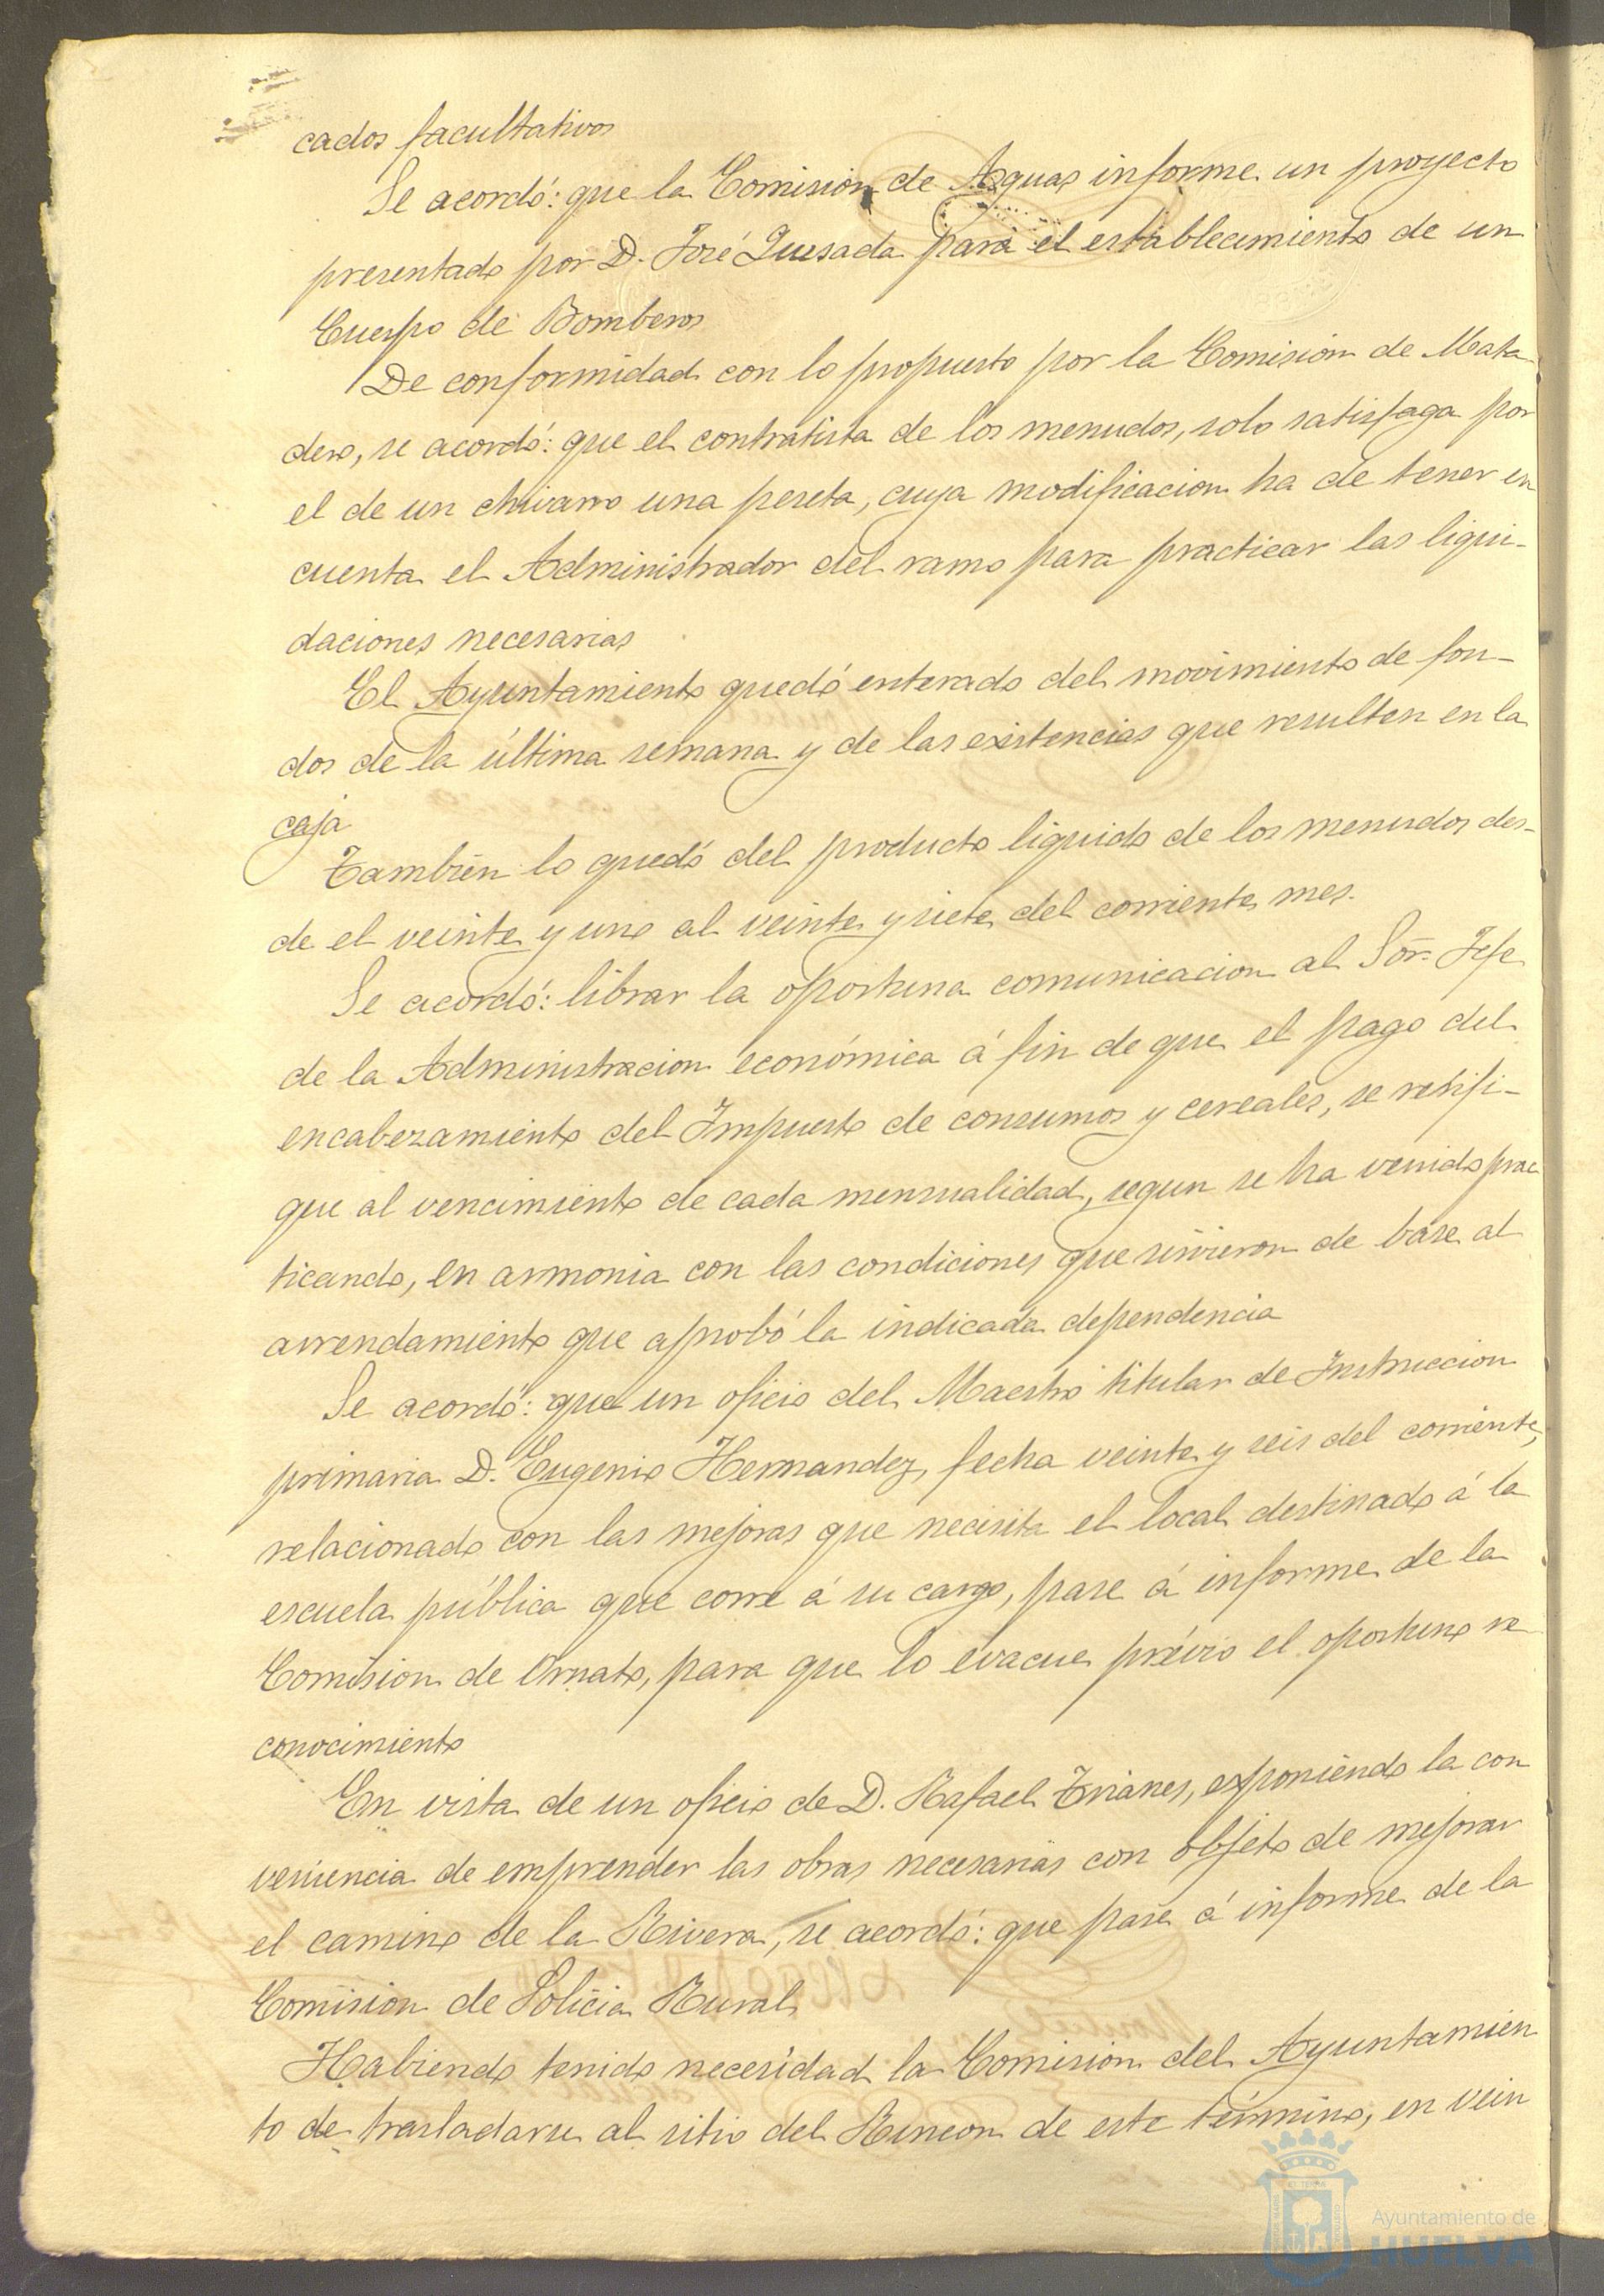 cados facultativos
Se acordó: que la Comision de Aguas informe un proyecto
presentado por D. José Quesada para el establecimiento de un
Cuerpo de Bomberos
De conformidad con lo propuesto por la Comision de Mata
dero, se acordó: que el contratista de los menudos, solo satisfaga por
el de un chivarro una peseta, cuya modificacion ha de tener en
cuenta el Administrador del ramo para practicar las liqui-
daciones necesarias
El Ayuntamiento quedó enterado del movimiento de fon-
dos de la última semana y de las existencias que resulten en la
caja
Tambien lo quedó del producto líquido de los menudos des-
de el veinte y uno al veinte y siete del corriente mes.
Se acordó: librar la oportuna comunicacion al Sor. Jefe
de la Administracion económica á fin de que el pago del
encabezamiento del Impuesto de consumos y cereales, se retifi-
que al vencimiento de cada mensualidad, segun se ha venido prac
ticando, en armonia con las condiciones que sirvieron de base al
arrendamiento que aprobó la indicada dependencia
Se acordó: que un oficio del Maestro titular de Instruccion
primaria D. Eugenio Hernandez, fecha veinte y seis del corriente,
relacionado con las mejoras que necesita el local destinado á la
escuela pública que corre á su cargo, pase á informe de la
Comision de Ornato, para que lo evacue prévio el oportuno re
conocimiento
En vista de un oficio de D. Rafael Trianes, exponiendo la con
veniencia de emprender las obras necesarias con objeto de mejorar
el camino de la Rivera, se acordó: que pase á informe de la
Comision de Policia Rural
Habiendo tenido necesidad la Comision del Ayuntamien
to de trasladarse al sitio del Rincon de este término, en vein
Ayuntamiento de
HUELVA